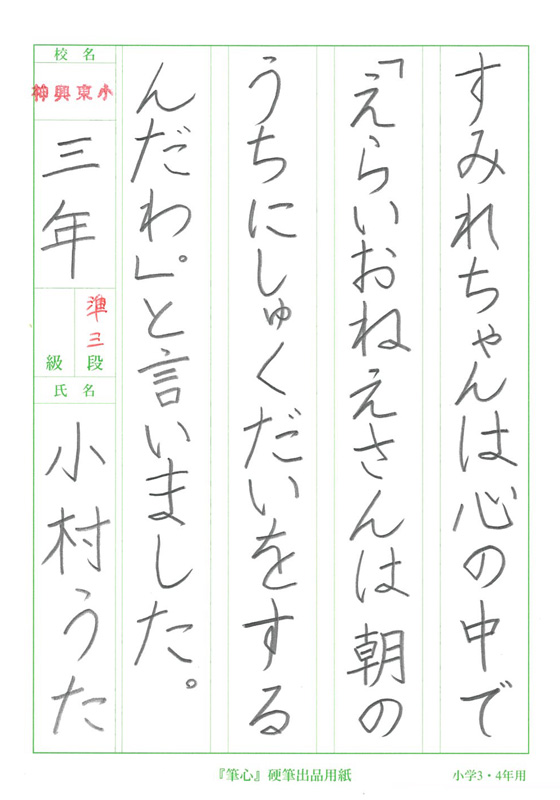 すみれちゃんは心の中で
「えらいおねえさんは朝の
うちにしゅくだいをする
んだわ。」と言いました。
校名
神興東小
三年
準三段
級
氏名
小村うた
『筆心』硬筆出品用紙
小学3・4年用